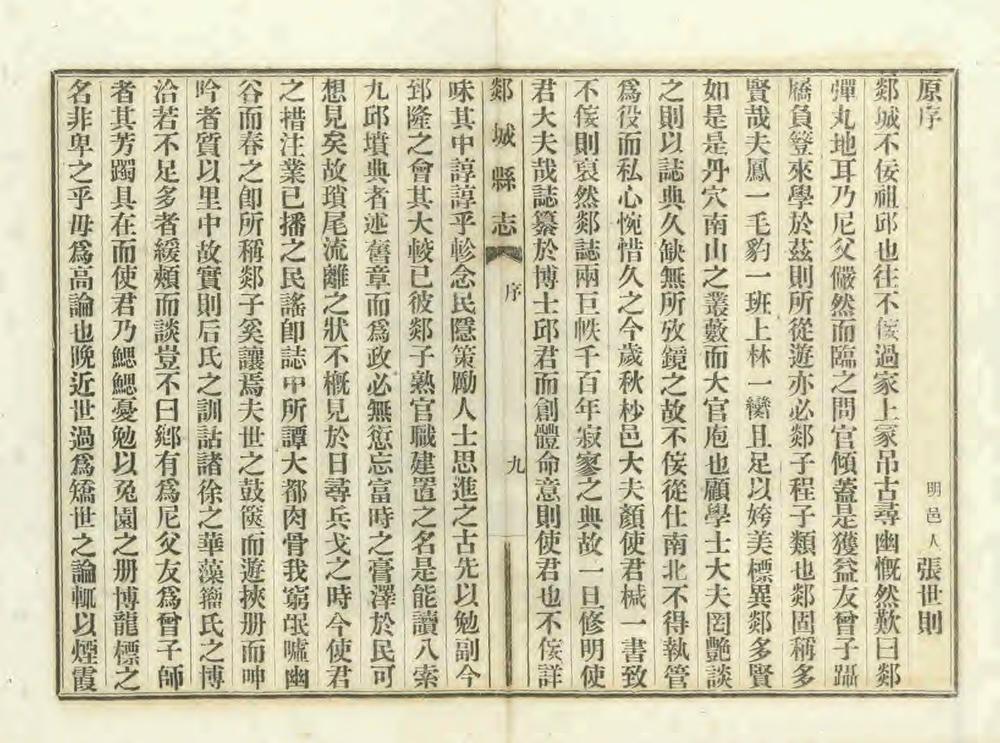 原序
明邑人張世則
郯城不佞祖邱也往不佞過家上冢吊古尋幽慨然歎曰郯
彈丸地耳乃尼父儼然而臨之問官傾蓋是獲益友曾子躡
屩負簦來學於茲則所從遊亦必郯子程子類也郯固稱多
賢哉夫鳳一毛豹一班上林一臠且足以姱美標異郯多賢
如是是丹穴南山之叢藪而大官庖也顧學士大夫罔艷談
之則以誌典久缺無所攷鏡之故不佞從仕南北不得執管
爲役而私心惋惜久之今歲秋杪邑大夫顏使君椷一書致
不佞則裒然郯誌兩巨帙千百年寂寥之典故一旦修明使
君大夫哉誌纂於博士邱君而創體命意則使君也不佞詳
郯城縣志
序
九
咊其中諄諄乎軫念民隱策勵人士思進之古先以勉副今
郅隆之會其大較已彼郯子熟官職建置之名是能讀八索
九邱墳典者述舊章而爲政必無愆忘富時之膏澤於民可
想見矣故瑣尾流離之狀不槪見於日尋兵戈之時今使君
之措注業已播之民謠卽誌中所譚大都肉骨我窮氓噓幽
谷而春之卽所稱郯子奚讓焉夫世之鼓篋而遊挾册而呻
吟者質以里中故實則后氏之訓詁諸徐之華藻籀氏之博
洽若不足多者緩頰而談豈不曰鄉有爲尼父友爲曾子師
者其芳躅具在而使君乃鰓鰓憂勉以兔園之册博龍標之
名非卑之乎毋爲高論也晚近世過爲矯世之論輒以煙霞